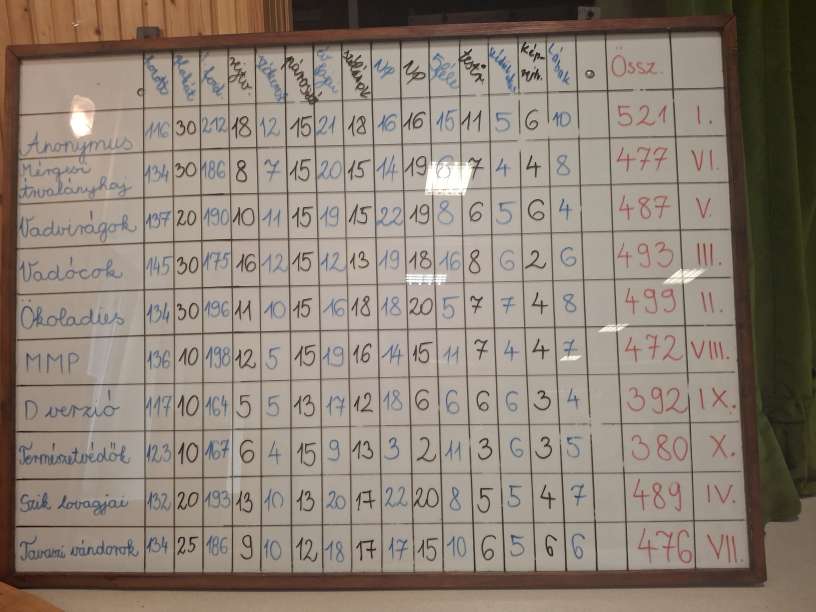 NP Vp 5 féle Össz.
Anonymus 116 30 212 18 12 15 21 18 16 16 15 11 5 6 10 521 I.
Mérgesi árvalányhaj 134 30 186 8 7 15 20 15 14 19 6 7 4 4 8 477 VI.
Vadvirágok 137 20 190 10 11 15 19 15 22 19 8 6 5 6 4 487 V.
Vadócok 145 30 175 16 12 15 12 13 19 18 16 8 6 2 6 493 III.
Ökoladies 134 30 196 11 10 15 16 18 18 20 5 7 7 4 8 499 II.
MMP 136 10 198 12 5 15 19 16 14 15 11 7 4 4 7 472 VIII.
D verzió 117 10 164 5 5 13 17 12 18 6 6 6 6 3 4 392 IX.
Természetvédők 123 10 167 6 4 15 9 13 3 2 11 3 6 3 5 380 X.
Szik lovagjai 132 20 193 13 10 13 20 17 22 20 8 5 5 4 7 489 IV.
Tavami vándorok 134 25 186 9 10 12 18 17 17 15 10 6 5 6 6 476 VII.